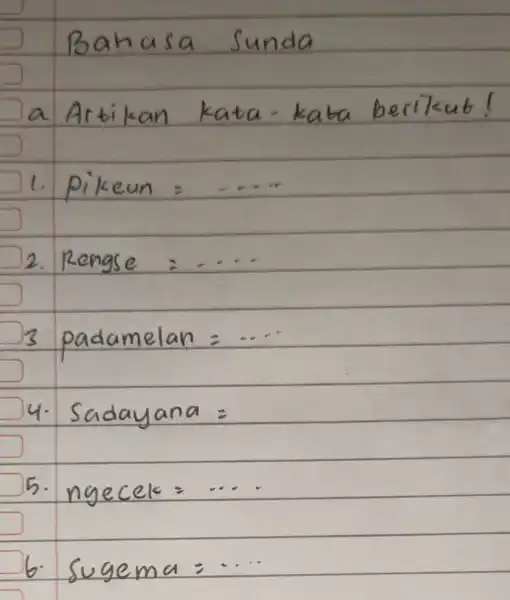 Bahasa Sunda
a Artikan kata - kata berikut!
1. pikeun = .....
2. Rengse = ....
3 padamelan = ....
4. Sadayana =
5. ngecek = ....
6. Sugema = ....